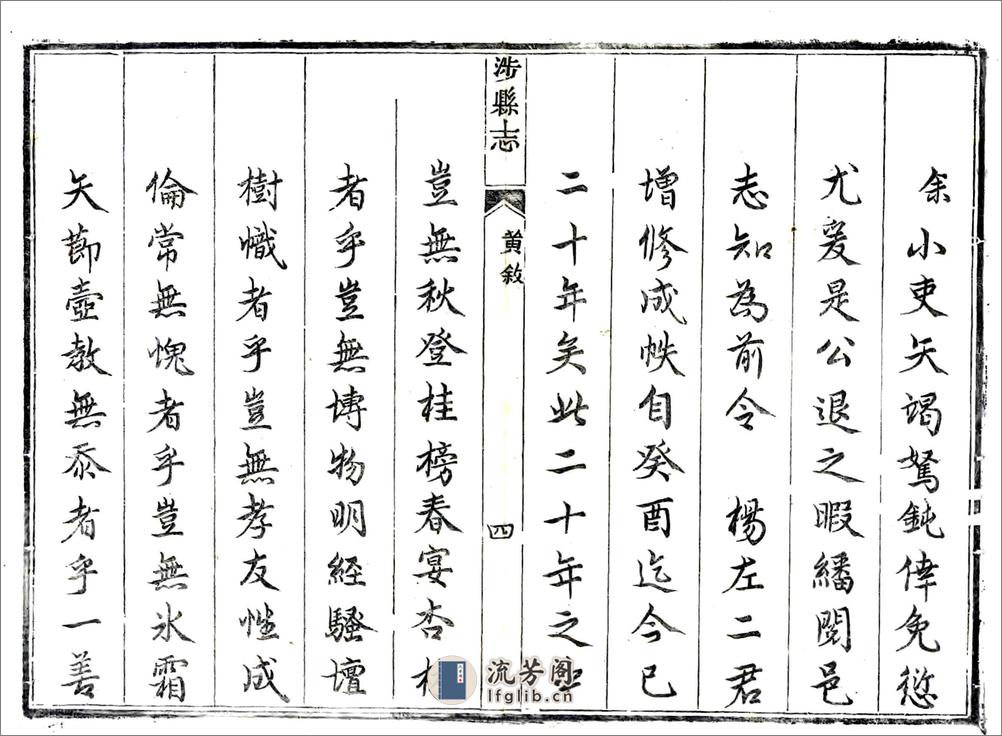 余小吏矢竭駑鈍倖免愆
尤爰是公退之暇繙閱邑
志知為前令 楊左二君
增修成帙自癸酉迄今已
二十年矣此二十年之
涉縣志 黄敘 四
豈無秋登桂榜春宴杏
者乎豈無博物明經騷壇
樹幟者乎豈無孝友性成
倫常無愧者乎豈無氷霜
矢節壼教無忝者乎一善
流芳阁
lfglib.cn